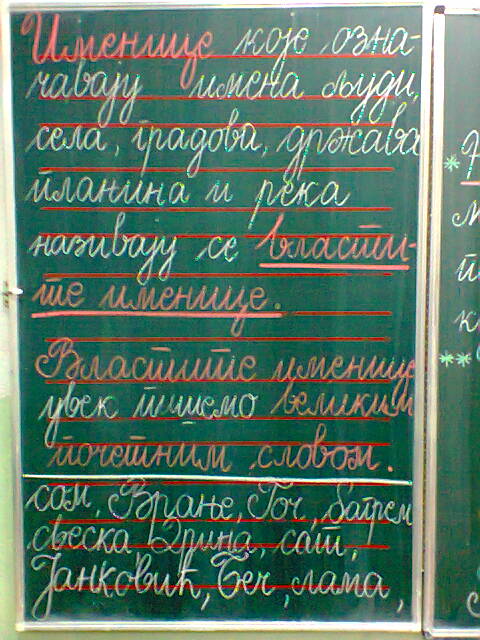 Именице које озна-
чавају имена људи,
села, градова, држава
планина и река
називају се власти-
те именице.
Властите именице
увек пишемо великим
почетним словом.
сом, Врање, Гоч, багрем
свеска, Дрина, сат,
Јанковић, Беч, лама,